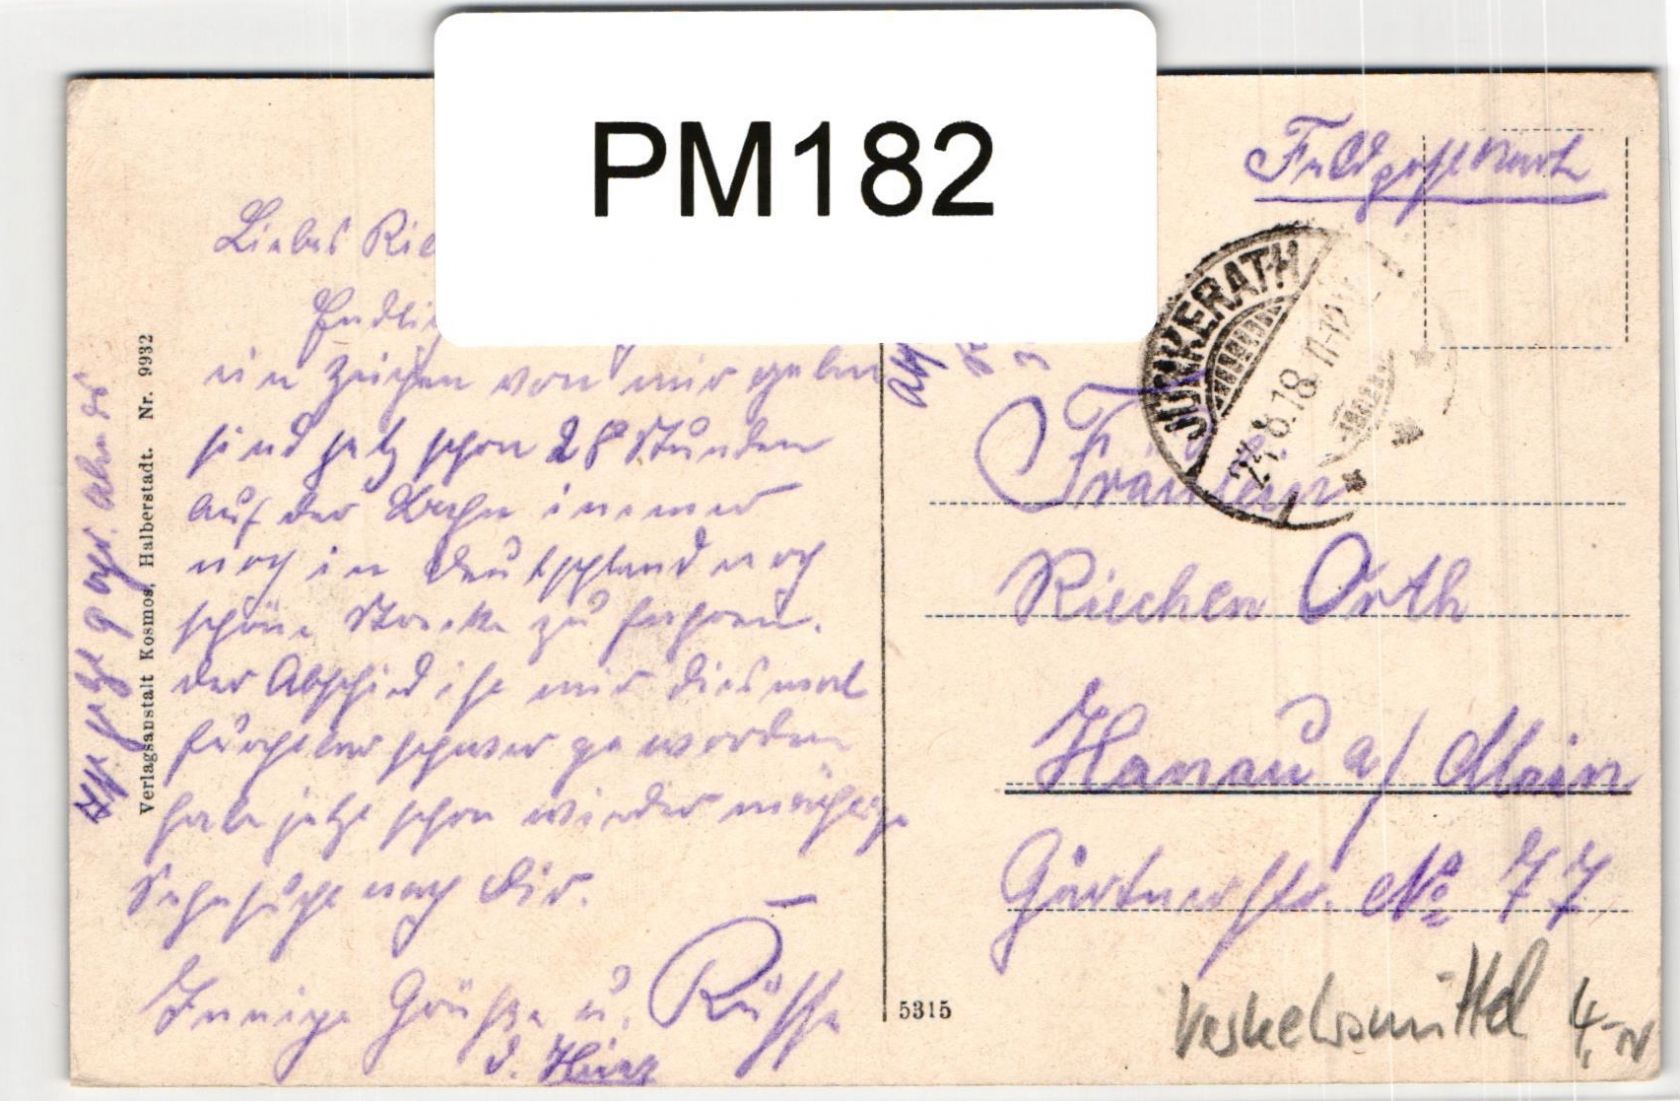 PM182
Feldpostkarte
Liebes
ein Zeichen von mir geben
sind jetz schon 28 Stunden
auf der Bahn immer
noch in Deutschland noch
schöne Strecke zu fahren.
der Abschied ist mir diesmal
furchtbar schwer geworden
habe jetzt schon wieder mächtige
Sehnsucht nach Dir.
Innige Grüße u. Küsse
d. Heinz
Verlagsanstalt Kosmos, Halberstadt. Nr. 9932
5315
JÜNKERATH
24.8.18. 11-12
Fräulein
Riechen Orth
Hanau a/ Main
Gärtnerstr. No 77
Verkehrsmittel 4,-